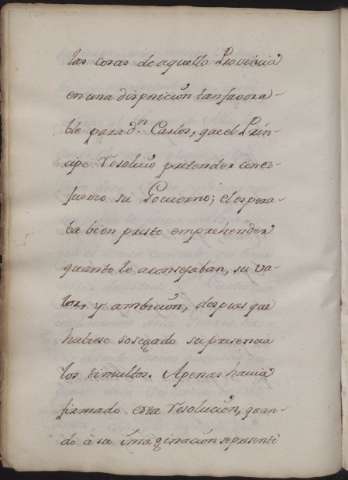 las cosas de aquella Provincia
en una disposicion tan favora-
ble para dⁿ. Carlos, que el Prin-
cipe resoluio pretender con es-
fuerso su Gouierno; el espera-
ba bien presto emprehender
quanto le aconsejaban, su va-
lor, y ambicion, despues que
hubiese sosegado su presencia
los tumultos. Apenas havia
firmado esta resolucion, quan-
do à su ymaginacion represente